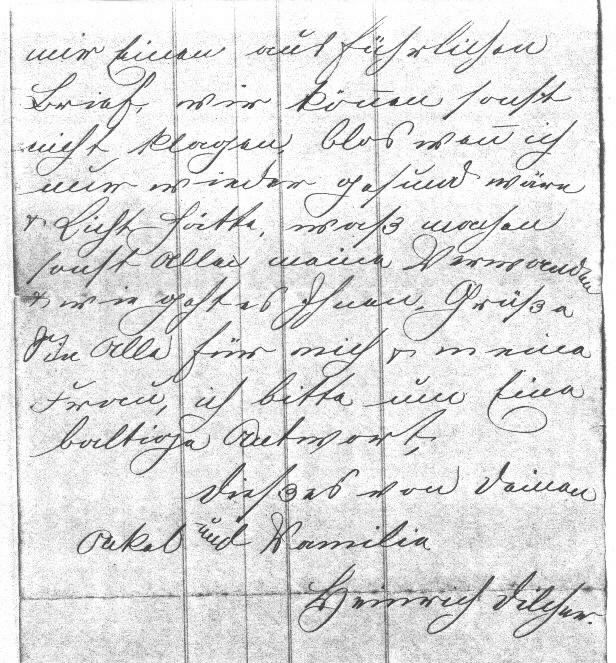 mir Einen ausführlichen
Brief, wir könen sonst
nicht klagen, blos wen̄ ich
nur wieder gesund wäre
& Licht hätte, waß machen
sonst Alle meine Verwanden
& wie geht es Ihnen, Grüße
Sie Alle für mich & meine
Frau, ich bitte um Eine
baltige Antwort,
Dießes von Deinen
Onkel und Familie
Heinrich Dilcher.